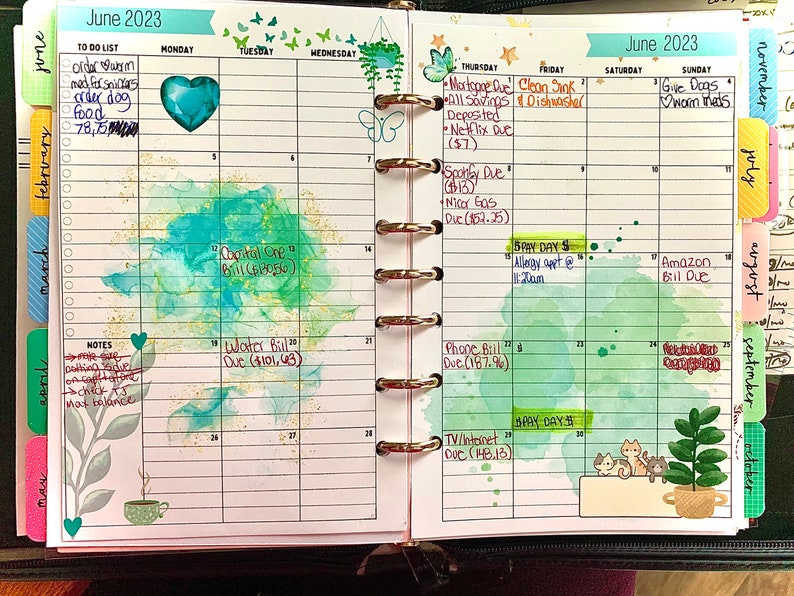 June 2023
TO DO LIST
MONDAY
TUESDAY
WEDNESDAY
order ♡worm
med for snickers
order dog
food
78,75
5
6
7
12
13
14
Capital One
Bill ($130.56)
19
20
21
Water Bill
Due ($101.63)
26
27
28
NOTES
→ make sure
nothing is due
on capital one
→ check TJ
Max balance
June 2023
THURSDAY
FRIDAY
SATURDAY
SUNDAY
1
2
3
4
• Mortgage Due
• All Savings
Deposited
• Netflix Due
($7)
Clean Sink
& Dishwasher
Give Dogs
♡worm meds
8
9
10
11
Spotify Due
($13)
• Nicor Gas
Due ($52.25)
$PAY DAY $
15
16
17
18
Allergy appt @
11:20am
Amazon
Bill Due
22
23
24
25
Phone Bill
Due (187.96)
$PAY DAY $
29
30
TV/Internet
Due (148.13)
june
february
march
april
may
november
july
august
september
october